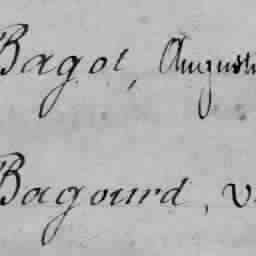 Bagot, August
Bagourd, v